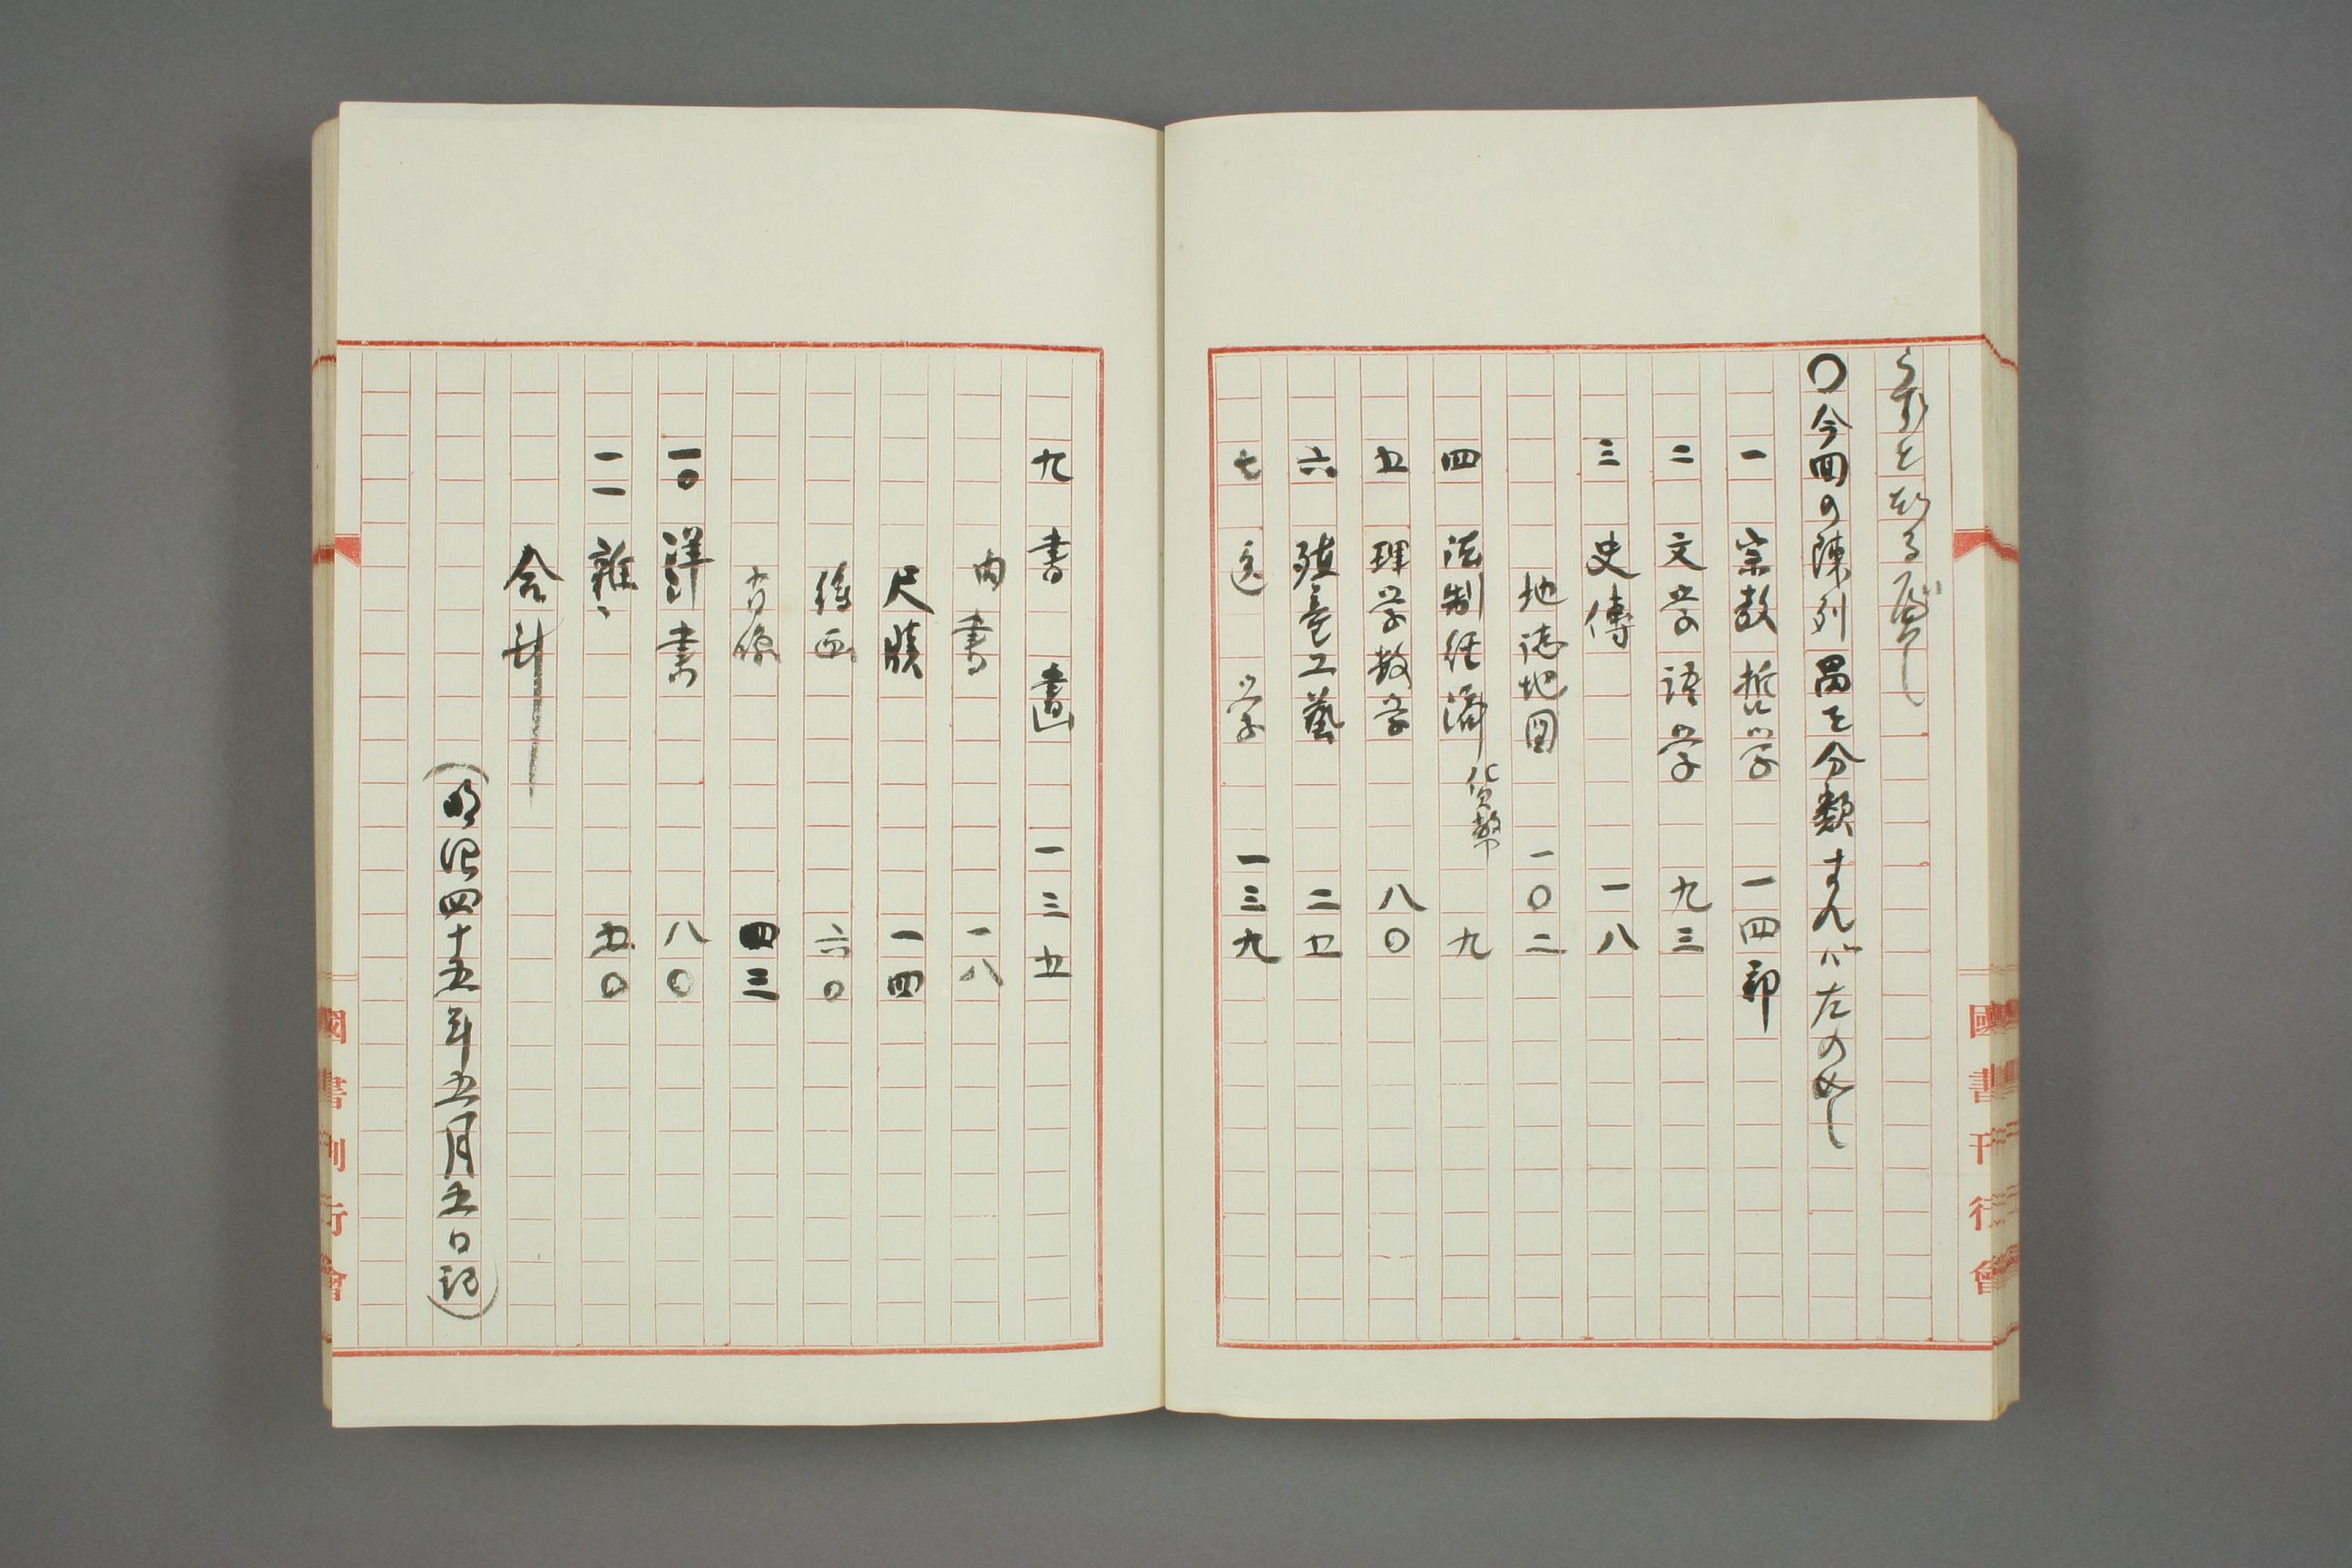 〇今回の陳列品を分類すれバ左の如し
一 宗教哲学 一四部
二 文学語学 九三
三 史傳 一八
地誌地図 一〇二
四 法制経済 貨幣 九
五 理学数学 八〇
六 殖産工藝 二五
七 医学 一三九
九 書畫 一三五
内書 一八
尺牘 一四
絵画 六〇
肖像 四三
一〇 洋書 八〇
一一 雑 五〇
合計
(明治四十五年五月五日記)
國書刊行會
國書刊行會